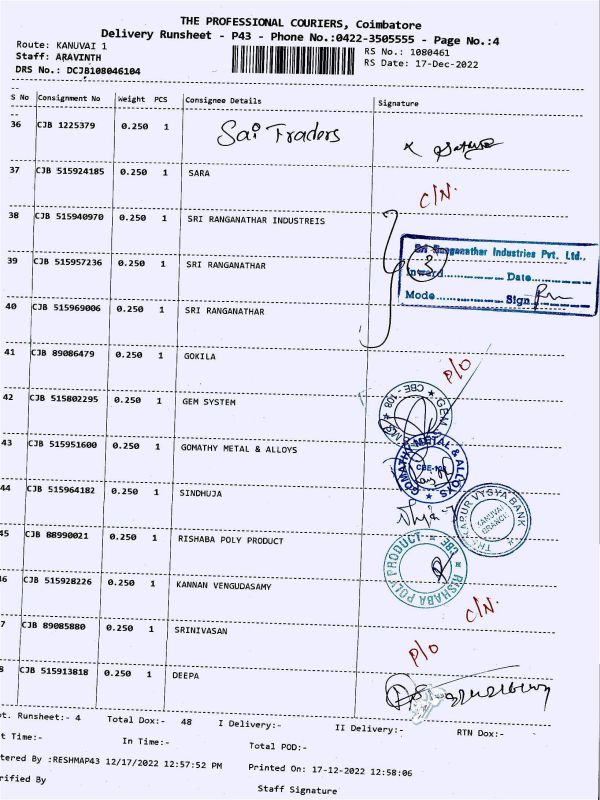 THE PROFESSIONAL COURIERS, Coimbatore
Delivery Runsheet - P43 - Phone No.:0422-3505555 - Page No.:4
Route: KANUVAI 1 RS No.: 1080461
Staff: ARAVINTH RS Date: 17-Dec-2022
DRS No.: DCJB108046104
S No Consignment No Weight PCS Consignee Details Signature
36 CJB 1225379 0.250 1 Sai Traders
37 CJB 515924185 0.250 1 SARA C/N.
38 CJB 515940970 0.250 1 SRI RANGANATHAR INDUSTREIS
Sri Ranganathar Industries Pvt. Ltd.,
39 CJB 515957236 0.250 1 SRI RANGANATHAR 3
Inward.............. Date..............
Mode.............. Sign
40 CJB 515969006 0.250 1 SRI RANGANATHAR
41 CJB 89086479 0.250 1 GOKILA P/O
42 CJB 515802295 0.250 1 GEM SYSTEM
GEM CBE - 108
43 CJB 515951600 0.250 1 GOMATHY METAL & ALLOYS
GOMATHY METAL & ALLOYS CBE-108
44 CJB 515964182 0.250 1 SINDHUJA
THE KARUR VYSYA BANK KANUVAI BRANCH
45 CJB 88990021 0.250 1 RISHABA POLY PRODUCT
RISHABA POLY PRODUCT CBE
46 CJB 515928226 0.250 1 KANNAN VENGUDASAMY C/N.
7 CJB 89085880 0.250 1 SRINIVASAN P/O
8 CJB 515913818 0.250 1 DEEPA
ot. Runsheet:- 4 Total Dox:- 48 I Delivery:- II Delivery:- RTN Dox:-
t Time:- In Time:- Total POD:-
tered By :RESHMAP43 12/17/2022 12:57:52 PM Printed On: 17-12-2022 12:58:06
rified By Staff Signature